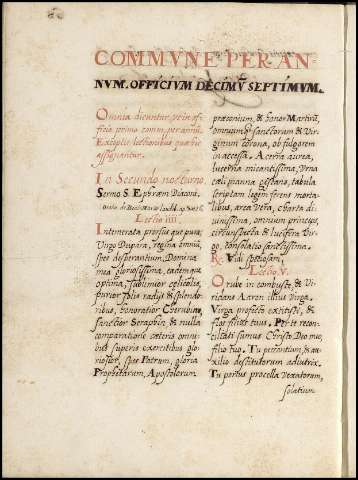 COMMVNE PER AN-
NVM. OFFICIVM DECIMV̄ SEPTIMVM.
Omnia dicuntur ut in of-
ficio primo comm. per annum.
Exceptis lectionibus quae hic
assignantur.
In Secundo nocturno
Sermo S. Ephraem Diaconi.
Lectio iiii.
Intemerata prorsus que pura
Virgo Deipara, regina omniū,
spes desperantium, Domina
mea gloriosissima, eadem que
optima, sublimior coelicolis,
purior solis radijs & splendo-
ribus, honoratior Cherubim,
sanctior Seraphin & nulla
comparatione caeteris omni-
bus superis exercitibus glo-
riosior, spes Patrum, gloria
Prophetarum, Apostolorum
praeconium, & honor Martirū,
omnium sanctorum & Vir-
ginum corona, ob fulgorem
inaccessa. Acerra aurea,
lucerna micantissima, Vrna
caeli manna gestans, tabula
scriptam legem ferens morta-
libus, arca vera, charta di-
uinissima, omnium princeps,
Vir-
go, consolatio sanctissima.
R. Vidi speciosam.
Lectio V.
O rube incombuste, & Vi-
ridans Aaron illius Virga.
Virga profecto extitisti, &
flos filius tuus. Per te recon-
ciliati sumus Christo Deo meo,
filio tuo. Tu peccantium, & au-
xilio destitutorum adiutrix.
Tu portus procella vexatorum,
solatium